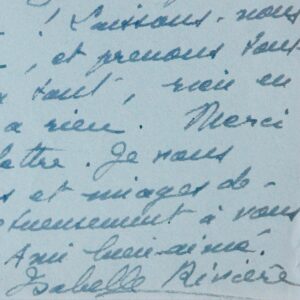 ! Laissons-nous
, et prenons tout
tout, rien en
a rien. Merci
lettre. Je vous
s et images de-
tueusement à vous
Ami bien-aimé.
Isabelle Rivière